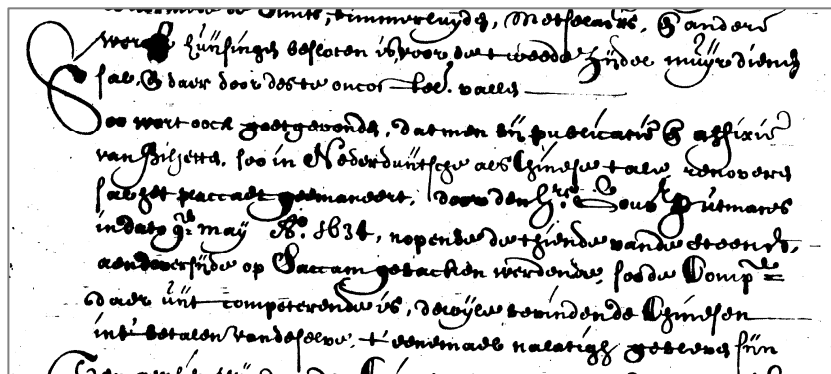 Smits, timmerluijden, Metselaers, & andere
werck huijsingh besloten is, voor de tweede zijdel muijr dienen
sal, & daer door des te oncostel. vallen
Soo wert oock goetgevonden, dat men bij publicatie & affixie
van Biljetten, soo in Nederduijtsche als Chinese tale renoveren
sal het placcaet geëmaneert, door den Hr. Gouvr. Putmans
in dato 9en. maij Ao. 1634, nopende de thiende vande steenen,
aen de oversijde op Saccam gebacken werdende, soo de Compe.
daer uijt competerende is, dewijle bevinden de Chinesen
int' betalen van deselve, t'eenemael nalatigh gebleven sijn